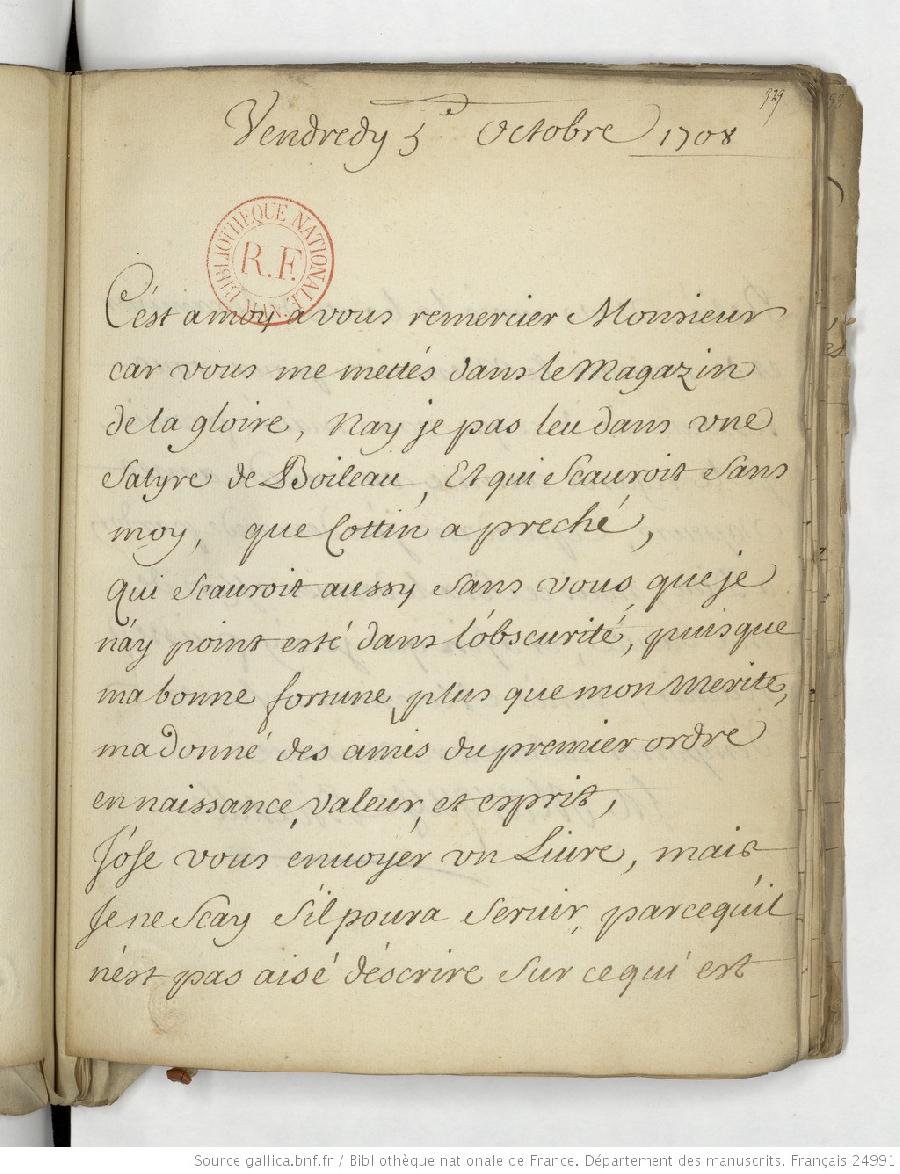 929
Vendredy 5e Octobre 1708
BIBLIOTHEQUE NATIONALE MSS
R.F.
C'est a moy a vous remercier Monsieur
car vous me mettés dans le Magazin
de la gloire, Nay je pas leu dans vne
Satyre de Boileau, Et qui Scauroit Sans
moy, que Cottin a preché,
Qui Scauroit aussy Sans vous, que je
n'ay point esté dans l'obscurité, puisque
ma bonne fortune, plus que mon Merite,
ma donné des amis du premier ordre
en naissance, valeur, et esprit,
J'ose vous enuoyer vn Liure, mais
Je ne Scay S'il poura Seruir, parcequ'il
n'est pas aisé déscrire Sur ce qui est
Source gallica.bnf.fr / Bibliothèque nationale de France. Département des manuscrits. Français 24991